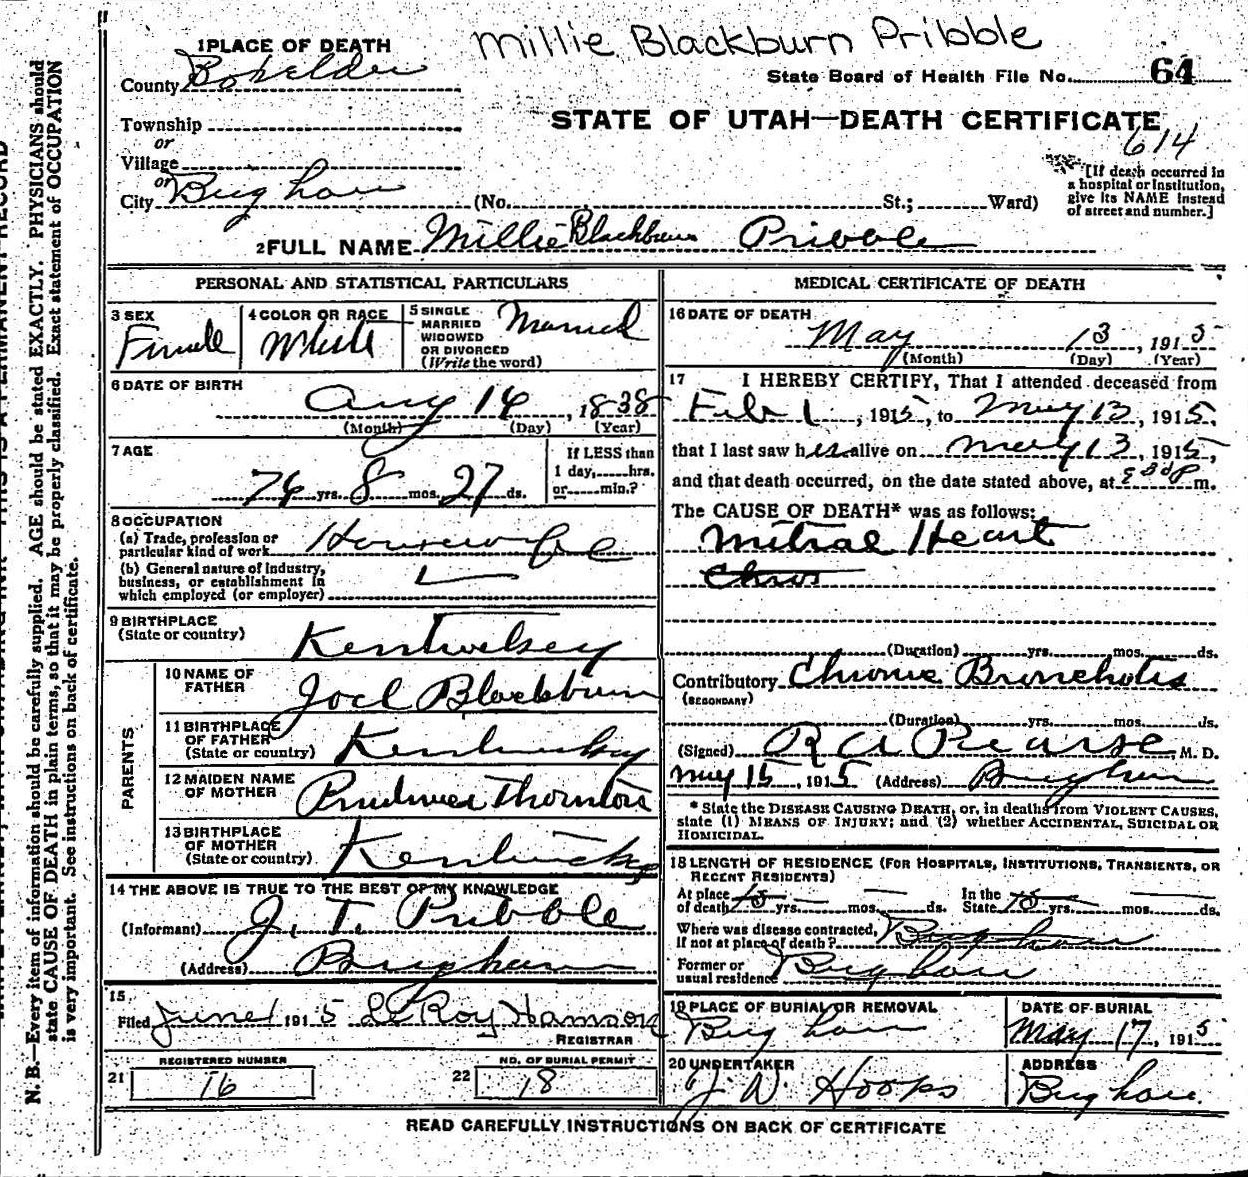 Millie Blackburn Pribble
1 PLACE OF DEATH
State Board of Health File No. 64
County Boxelder
STATE OF UTAH—DEATH CERTIFICATE
614
Township
or
Village
or
City Brigham (No. St.; Ward)
[If death occurred in
a hospital or institution,
give its NAME instead
of street and number.]
2 FULL NAME Millie Blackburn Pribble
PERSONAL AND STATISTICAL PARTICULARS
3 SEX
Female
4 COLOR OR RACE
White
5 SINGLE
MARRIED
WIDOWED
OR DIVORCED
(Write the word)
Married
6 DATE OF BIRTH
Aug 14, 1838
(Month) (Day) (Year)
7 AGE
76 yrs. 8 mos. 27 ds.
If LESS than
1 day, hrs.
or min.?
8 OCCUPATION
(a) Trade, profession or
particular kind of work Housewife
(b) General nature of industry,
business, or establishment in
which employed (or employer)
9 BIRTHPLACE
(State or country)
Kentucksey
PARENTS
10 NAME OF
FATHER
Joel Blackburn
11 BIRTHPLACE
OF FATHER
(State or country)
Kentucky
12 MAIDEN NAME
OF MOTHER
Prudence Thornton
13 BIRTHPLACE
OF MOTHER
(State or country)
Kentucky
14 THE ABOVE IS TRUE TO THE BEST OF MY KNOWLEDGE
(Informant) J. T. Pribble
(Address) Brigham
15
Filed June 1 1915 LeRoy Hanson
REGISTRAR
REGISTERED NUMBER
21 16
NO. OF BURIAL PERMIT
22 18
MEDICAL CERTIFICATE OF DEATH
16 DATE OF DEATH
May 13, 1915
(Month) (Day) (Year)
17 I HEREBY CERTIFY, That I attended deceased from
Feb 1, 1915, to May 13, 1915,
that I last saw her alive on May 13, 1915,
and that death occurred, on the date stated above, at m.
The CAUSE OF DEATH* was as follows:
Mitral Heart
(Duration) yrs. mos. ds.
Contributory Chronic Bronchotis
(SECONDARY)
(Duration) yrs. mos. ds.
(Signed) R A Pearse, M. D.
May 15, 1915 (Address) Brigham
* State the DISEASE CAUSING DEATH, or, in deaths from VIOLENT CAUSES,
state (1) MEANS OF INJURY; and (2) whether ACCIDENTAL, SUICIDAL OR
HOMICIDAL.
18 LENGTH OF RESIDENCE (FOR HOSPITALS, INSTITUTIONS, TRANSIENTS, OR
RECENT RESIDENTS)
At place
of death yrs. mos. ds.
In the
State yrs. mos. ds.
Where was disease contracted,
if not at place of death? Brigham
Former or
usual residence Brigham
19 PLACE OF BURIAL OR REMOVAL
Brigham
DATE OF BURIAL
May 17, 1915
20 UNDERTAKER
J W. Hoops
ADDRESS
Brigham
READ CAREFULLY INSTRUCTIONS ON BACK OF CERTIFICATE
N. B.—Every item of information should be carefully supplied. AGE should be stated EXACTLY. PHYSICIANS should
state CAUSE OF DEATH in plain terms, so that it may be properly classified. Exact statement of OCCUPATION
is very important. See instructions on back of certificate.